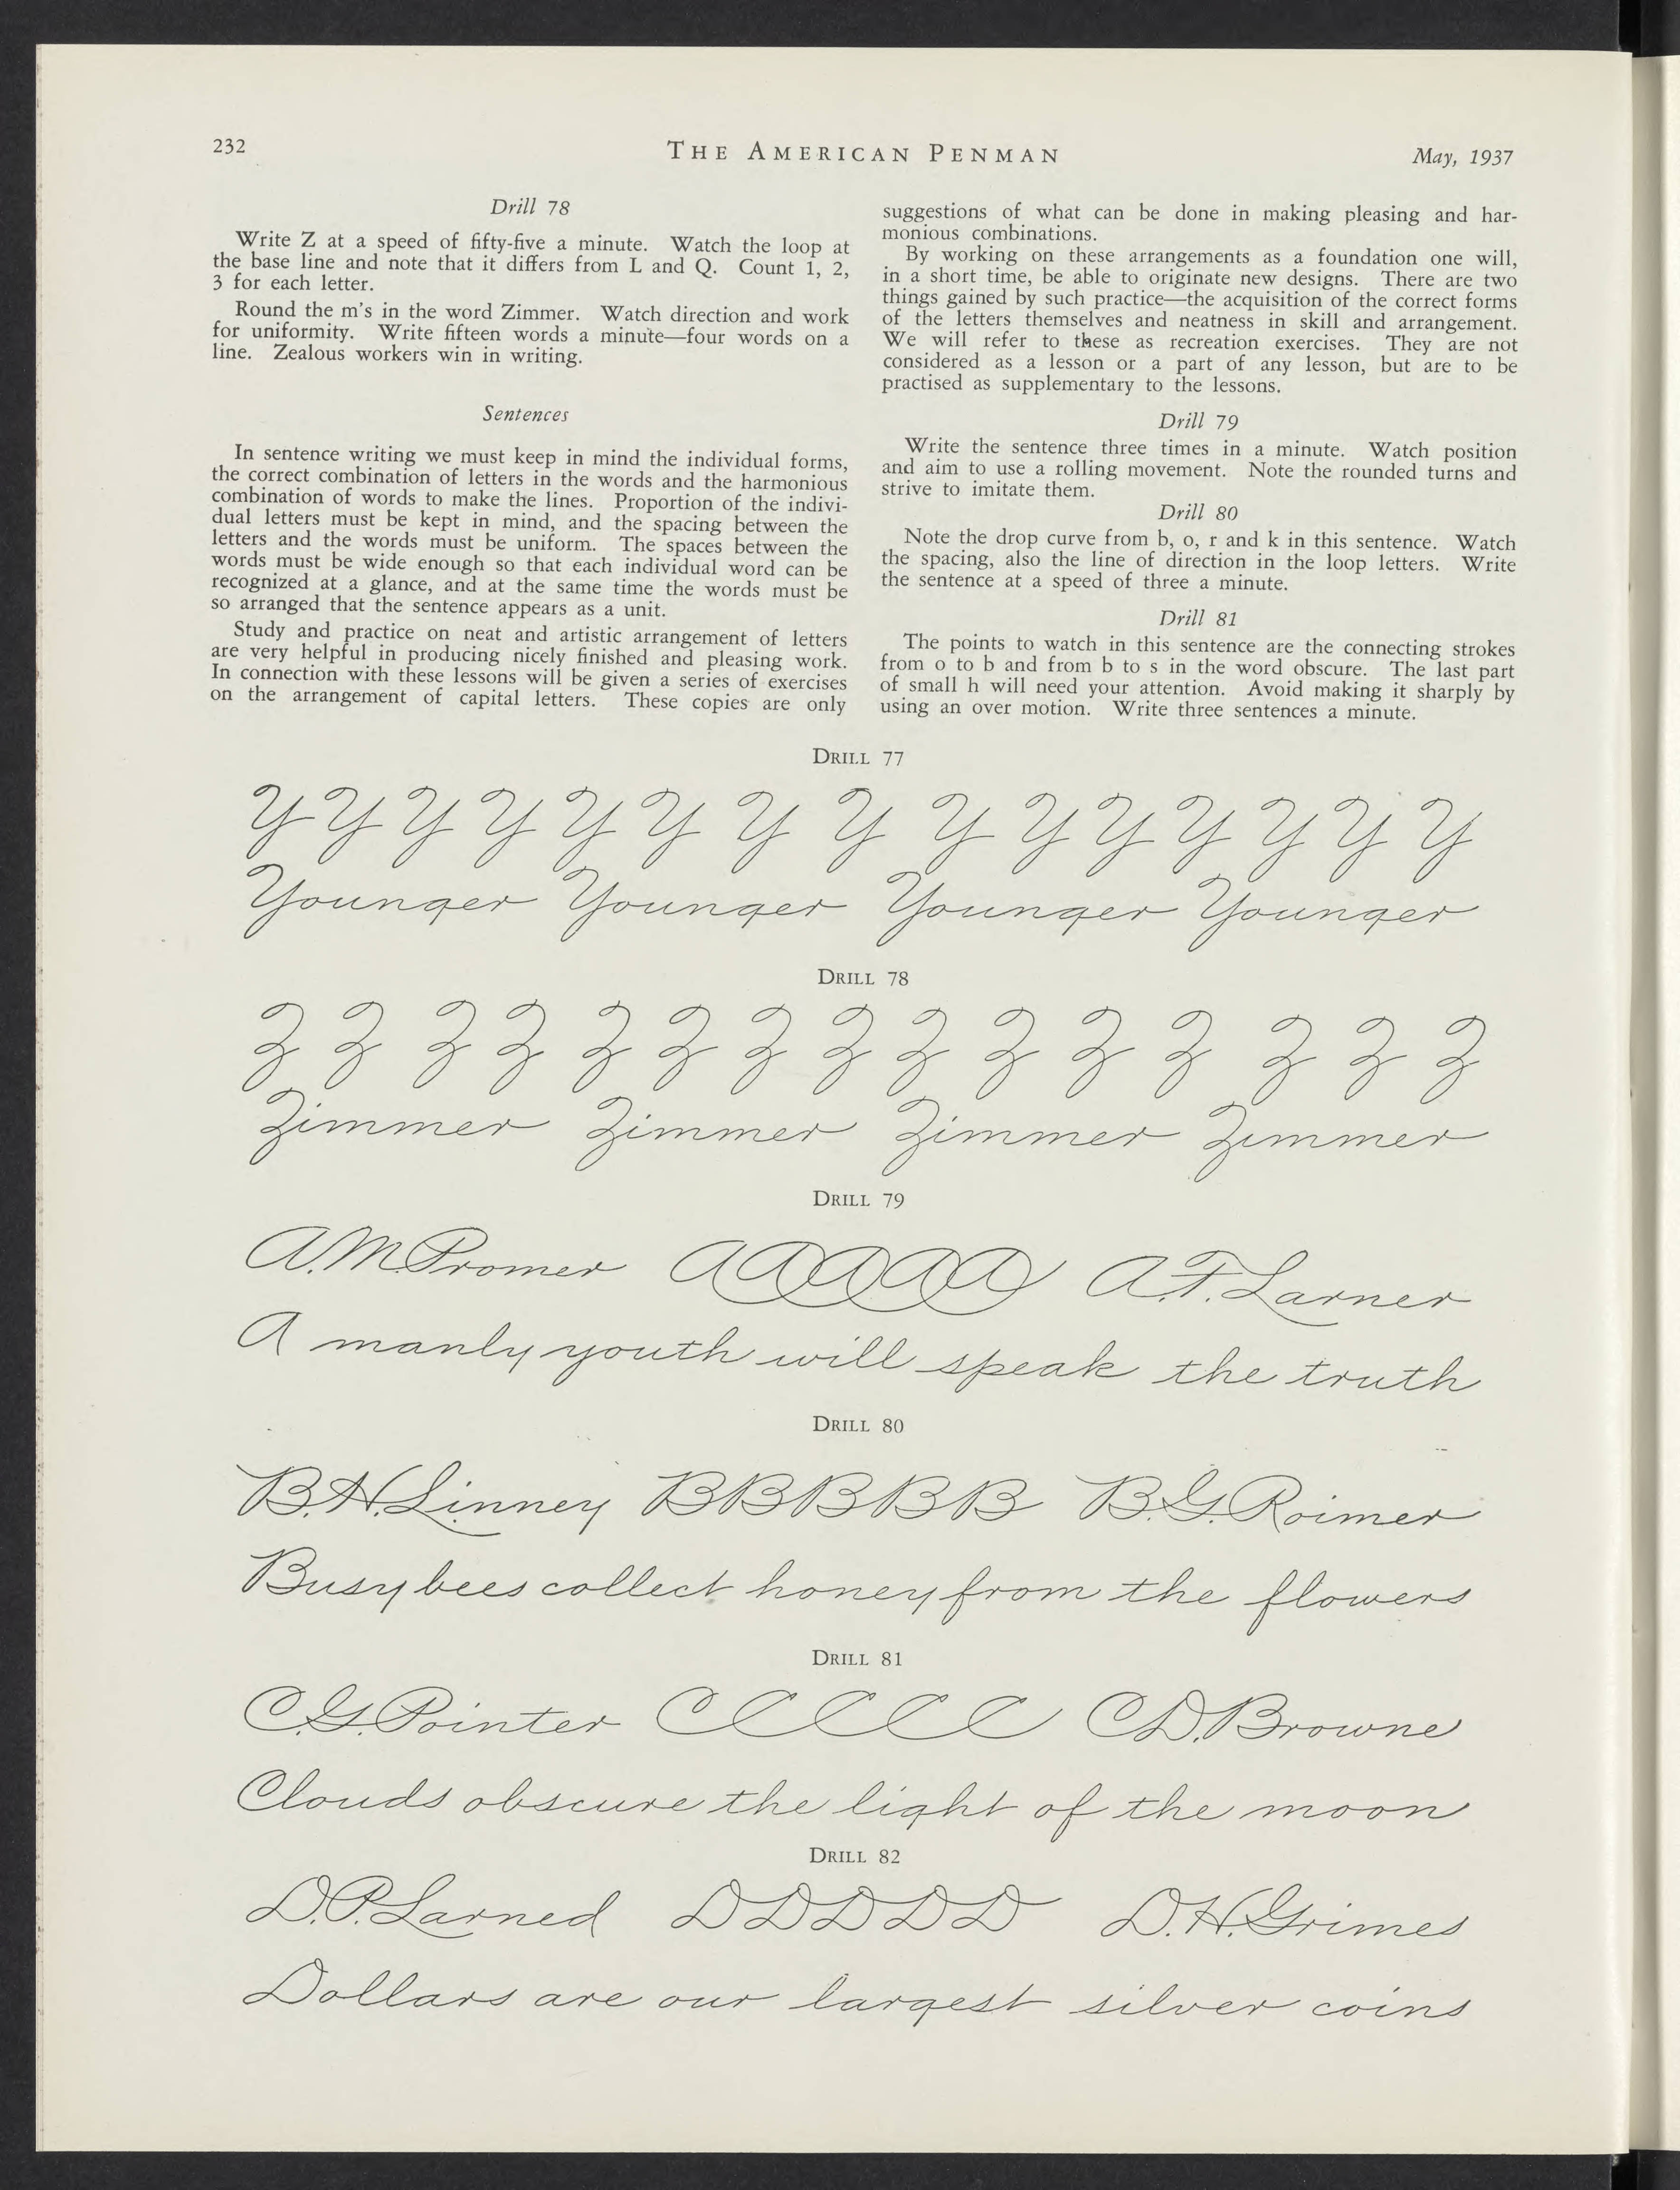 232
THE AMERICAN PENMAN
May, 1937
Drill 78
Write Z at a speed of fifty-five a minute. Watch the loop at
the base line and note that it differs from L and Q. Count 1, 2,
3 for each letter.
Round the m's in the word Zimmer. Watch direction and work
for uniformity. Write fifteen words a minute—four words on a
line. Zealous workers win in writing.
Sentences
In sentence writing we must keep in mind the individual forms,
the correct combination of letters in the words and the harmonious
combination of words to make the lines. Proportion of the indivi-
dual letters must be kept in mind, and the spacing between the
letters and the words must be uniform. The spaces between the
words must be wide enough so that each individual word can be
recognized at a glance, and at the same time the words must be
so arranged that the sentence appears as a unit.
Study and practice on neat and artistic arrangement of letters
are very helpful in producing nicely finished and pleasing work.
In connection with these lessons will be given a series of exercises
on the arrangement of capital letters. These copies are only
suggestions of what can be done in making pleasing and har-
monious combinations.
By working on these arrangements as a foundation one will,
in a short time, be able to originate new designs. There are two
things gained by such practice—the acquisition of the correct forms
of the letters themselves and neatness in skill and arrangement.
We will refer to these as recreation exercises. They are not
considered as a lesson or a part of any lesson, but are to be
practised as supplementary to the lessons.
Drill 79
Write the sentence three times in a minute. Watch position
and aim to use a rolling movement. Note the rounded turns and
strive to imitate them.
Drill 80
Note the drop curve from b, o, r and k in this sentence. Watch
the spacing, also the line of direction in the loop letters. Write
the sentence at a speed of three a minute.
Drill 81
The points to watch in this sentence are the connecting strokes
from o to b and from b to s in the word obscure. The last part
of small h will need your attention. Avoid making it sharply by
using an over motion. Write three sentences a minute.
DRILL 77
Y Y Y Y Y Y Y Y Y Y Y Y Y Y Y
Younger Younger Younger Younger
DRILL 78
Z Z Z Z Z Z Z Z Z Z Z Z Z Z Z
Zimmer Zimmer Zimmer Zimmer
DRILL 79
A.M.Promer A A A A A A.F.Larner
A manly youth will speak the truth
DRILL 80
B.H.Linney B B B B B B.G.Roimer
Busy bees collect honey from the flowers
DRILL 81
C.G.Pointer C C C C C C.D.Browne
Clouds obscure the light of the moon
DRILL 82
D.P.Larned D D D D D D.H.Grimes
Dollars are our largest silver coins